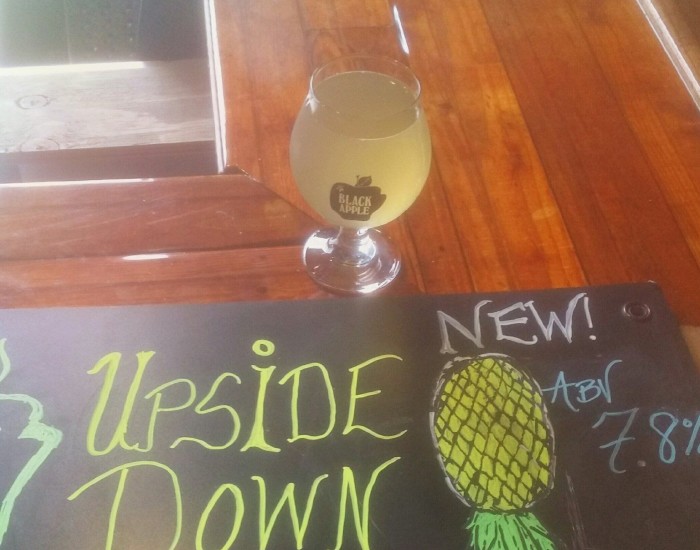 The
BLACK
APPLE
NEW!
UPSiDE
DOWN
ABV
7.8%